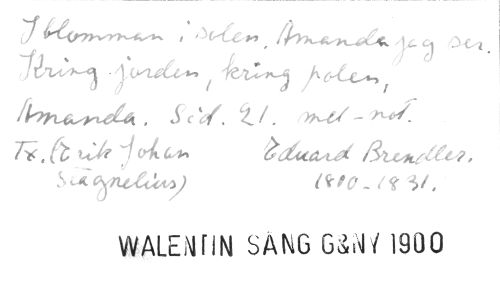 I blomman i solen, Amanda jag ser.
Kring jorden, kring polen,
Amanda. Sid. 21. mel-not.
Tx. (Erik Johan Eduard Brendler.
Stagnelius) 1800-1831.
WALENTIN SÅNG G&NY 1900